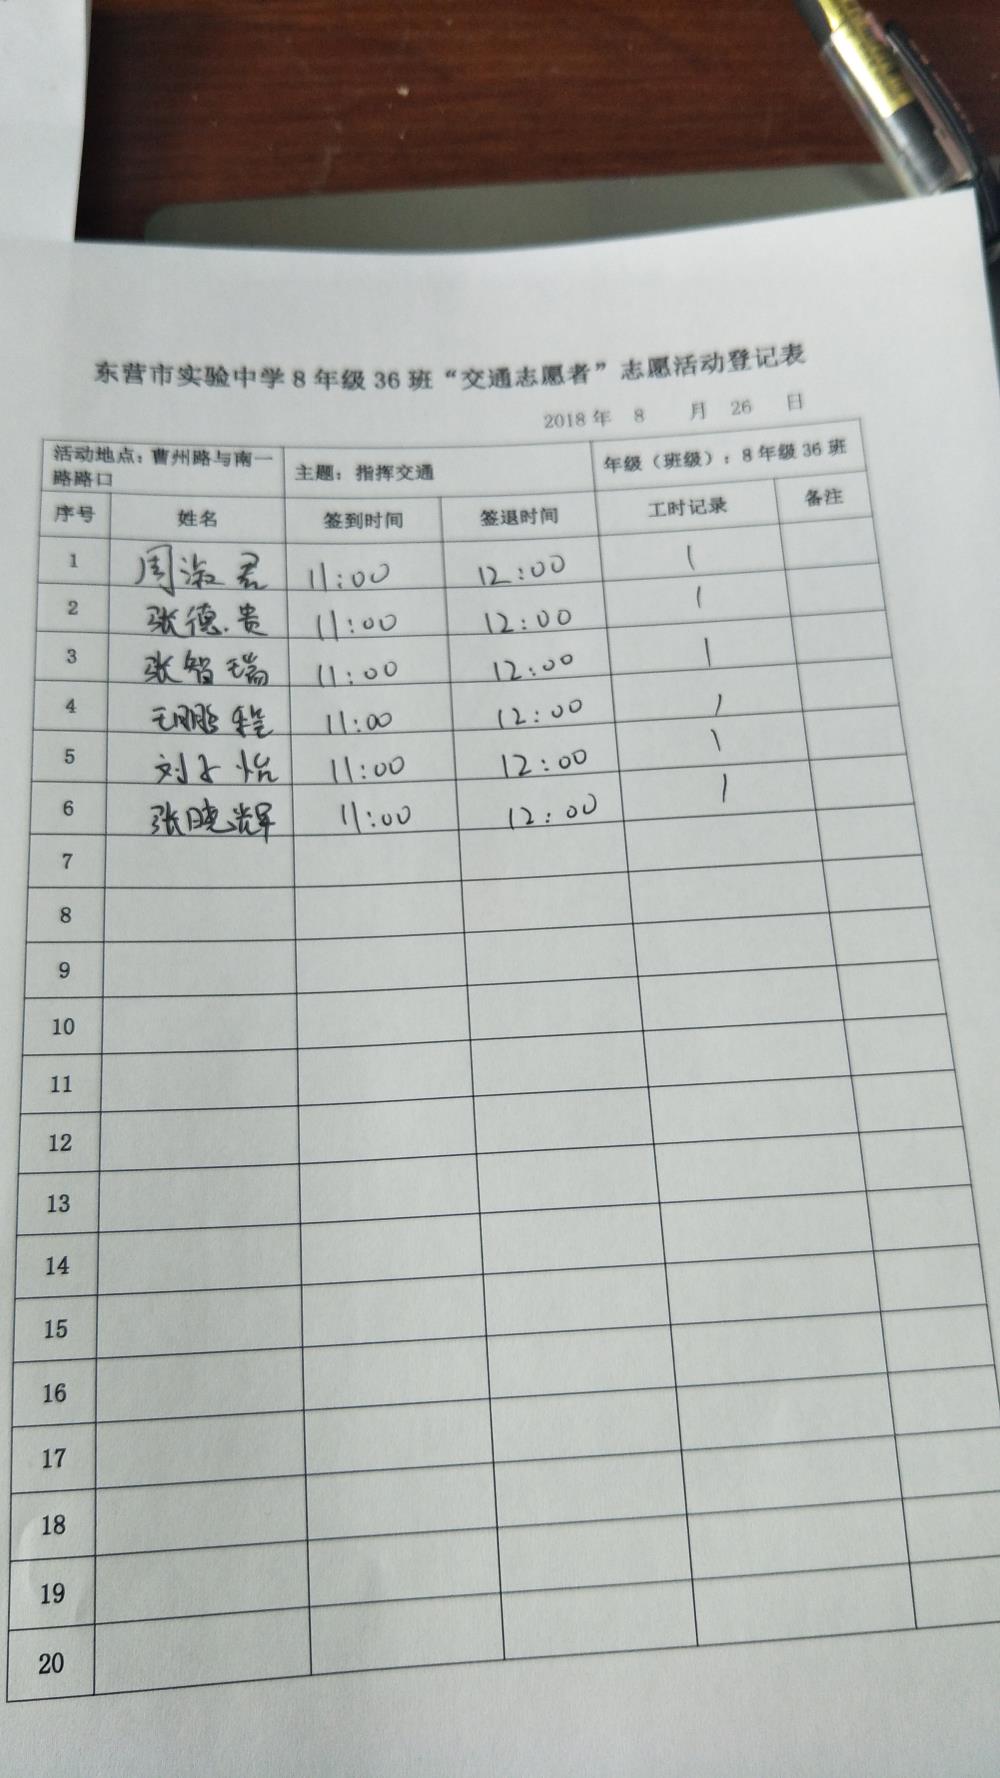 东营市实验中学8年级36班“交通志愿者”志愿活动登记表
2018年 8 月 26 日
活动地点：曹州路与南一路路口 主题：指挥交通 年级（班级）：8年级36班
序号 姓名 签到时间 签退时间 工时记录 备注
1 周淑君 11:00 12:00 1
2 张德贵 11:00 12:00 1
3 张智瑞 11:00 12:00 1
4 王鹏程 11:00 12:00 1
5 刘子怡 11:00 12:00 1
6 张晓辉 11:00 12:00 1
7
8
9
10
11
12
13
14
15
16
17
18
19
20